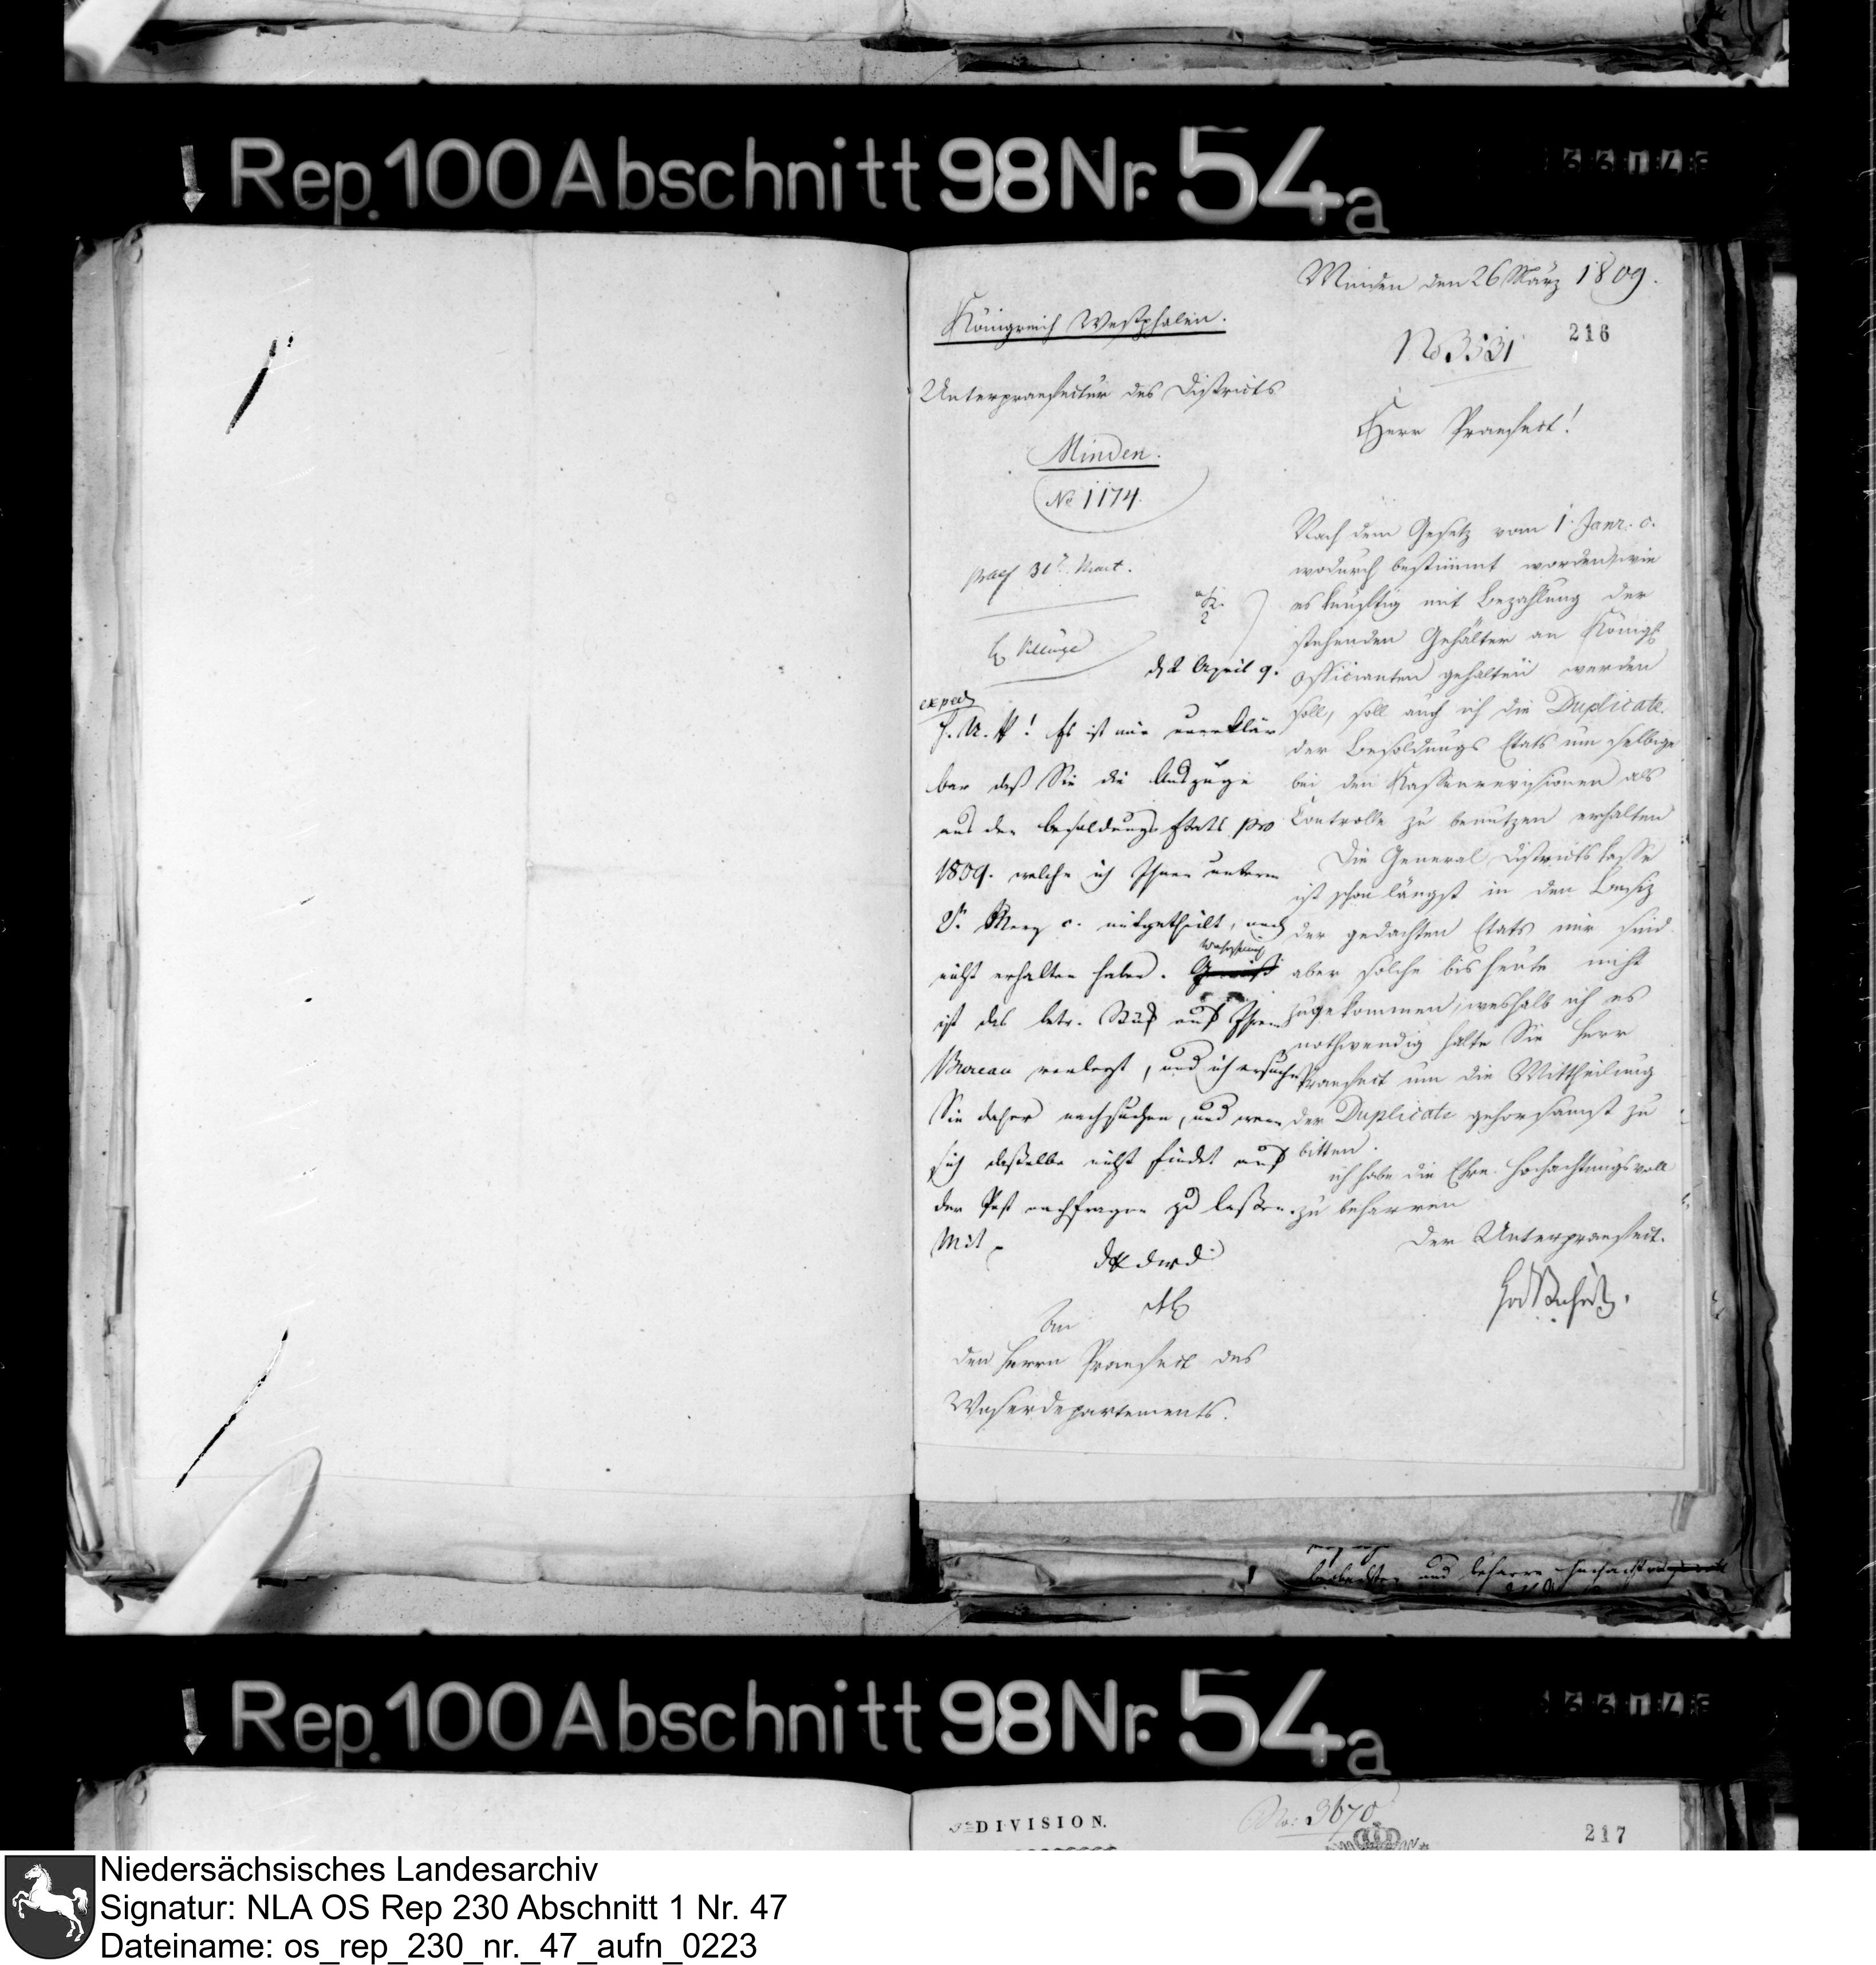 Rep. 100 Abschnitt 98 Nr. 54a
Minden den 26 März 1809.
Königreich Westphalen.
216
No 3531
Unterpraefectur des Districts
Minden.
No 1174.
Herr Praefect!
praes 31t Mart.
d 2 April 9.
exped
H. U. P! Es ist mir unerklär
bar daß Sie die Auszüge
aus den besoldungs Etats pro
1809. welche ich Ihnen unterm
Merz c. mitgetheilt, noch
nicht erhalten haben. Gewiß
Wahrscheinlich
ist das betr. Stück auf Ihrem
Bureau verlegt, und ich ersuche
Sie daher nachsuchen, und wenn
sich daßelbe nicht findet auf
der Post nachfragen zu laßen.
Mit
An
den Herrn Praefect des
Weserdepartements.
Nach dem Gesetz vom 1. Janr. c.
wodurch bestimmt worden, wie
es künftig mit Bezahlung der
stehenden Gehälter an Königl
Officianten gehalten werden
soll, soll auch ich die Duplicate
der Besoldungs Etats um selbige
bei den Kassenrevisionen als
Controlle zu benutzen erhalten
Die General Districtskasse
ist schon längst in den Besiz
der gedachten Etats mir sind
aber solche bis heute nicht
zugekommen, weshalb ich es
nothwendig halte Sie Herr
Praefect um die Mittheilung
der Duplicate gehorsamst zu
bitten.
ich habe die Ehre hochachtungsvoll
zu beharren
Der Unterpraefect.
und beharre
Rep. 100 Abschnitt 98 Nr. 54a
DIVISION.
No: 3670
217
Niedersächsisches Landesarchiv
Signatur: NLA OS Rep 230 Abschnitt 1 Nr. 47
Dateiname: os_rep_230_nr._47_aufn_0223